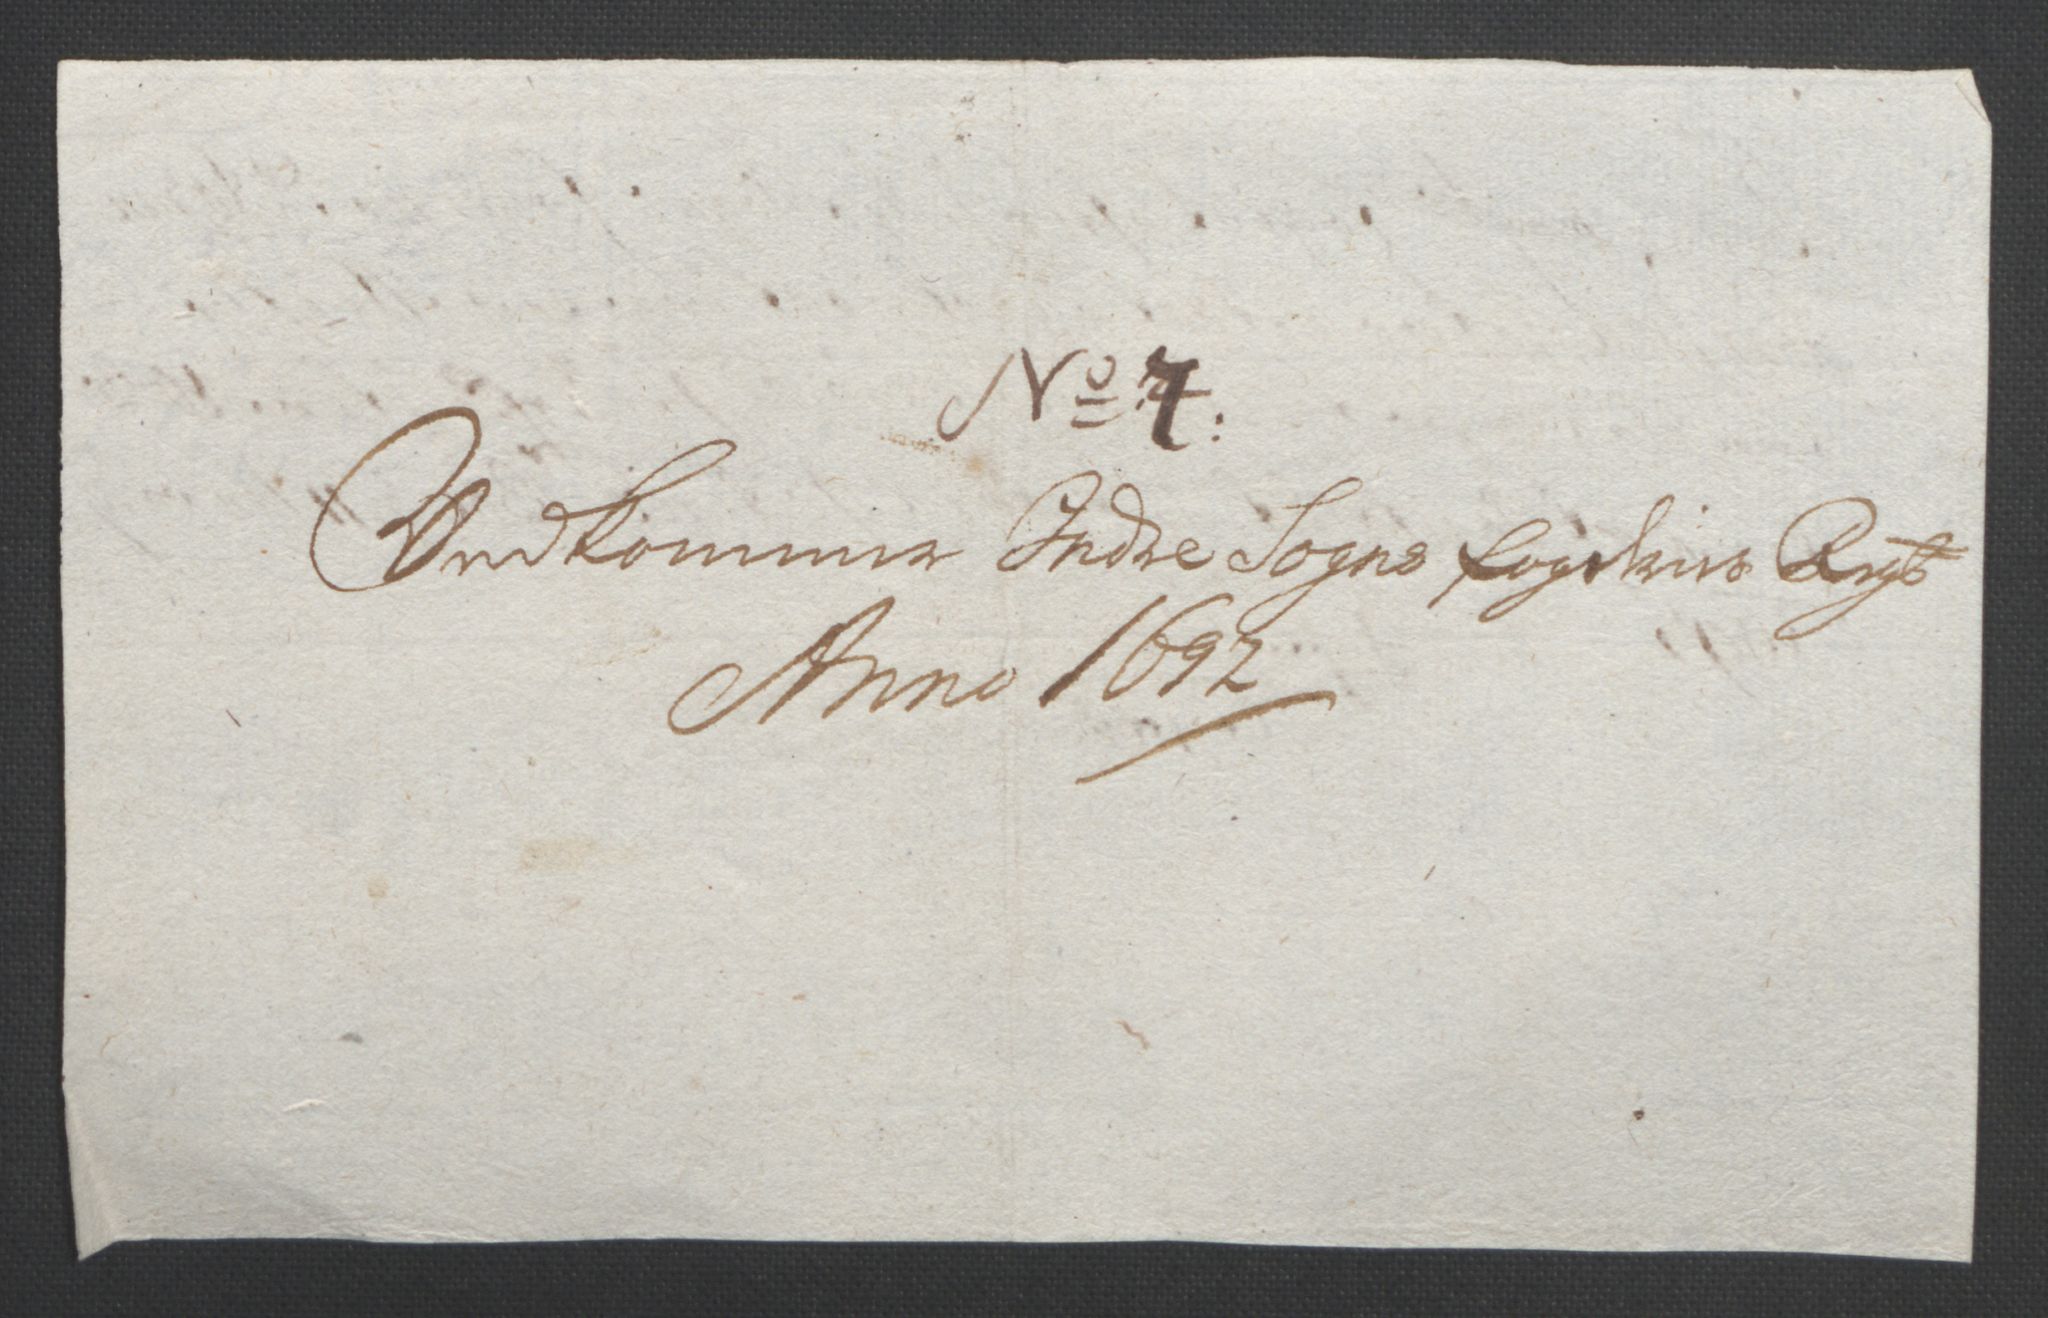 No 7:
Vedkommer Indre Sogns fogderies Regt
Anno 1692